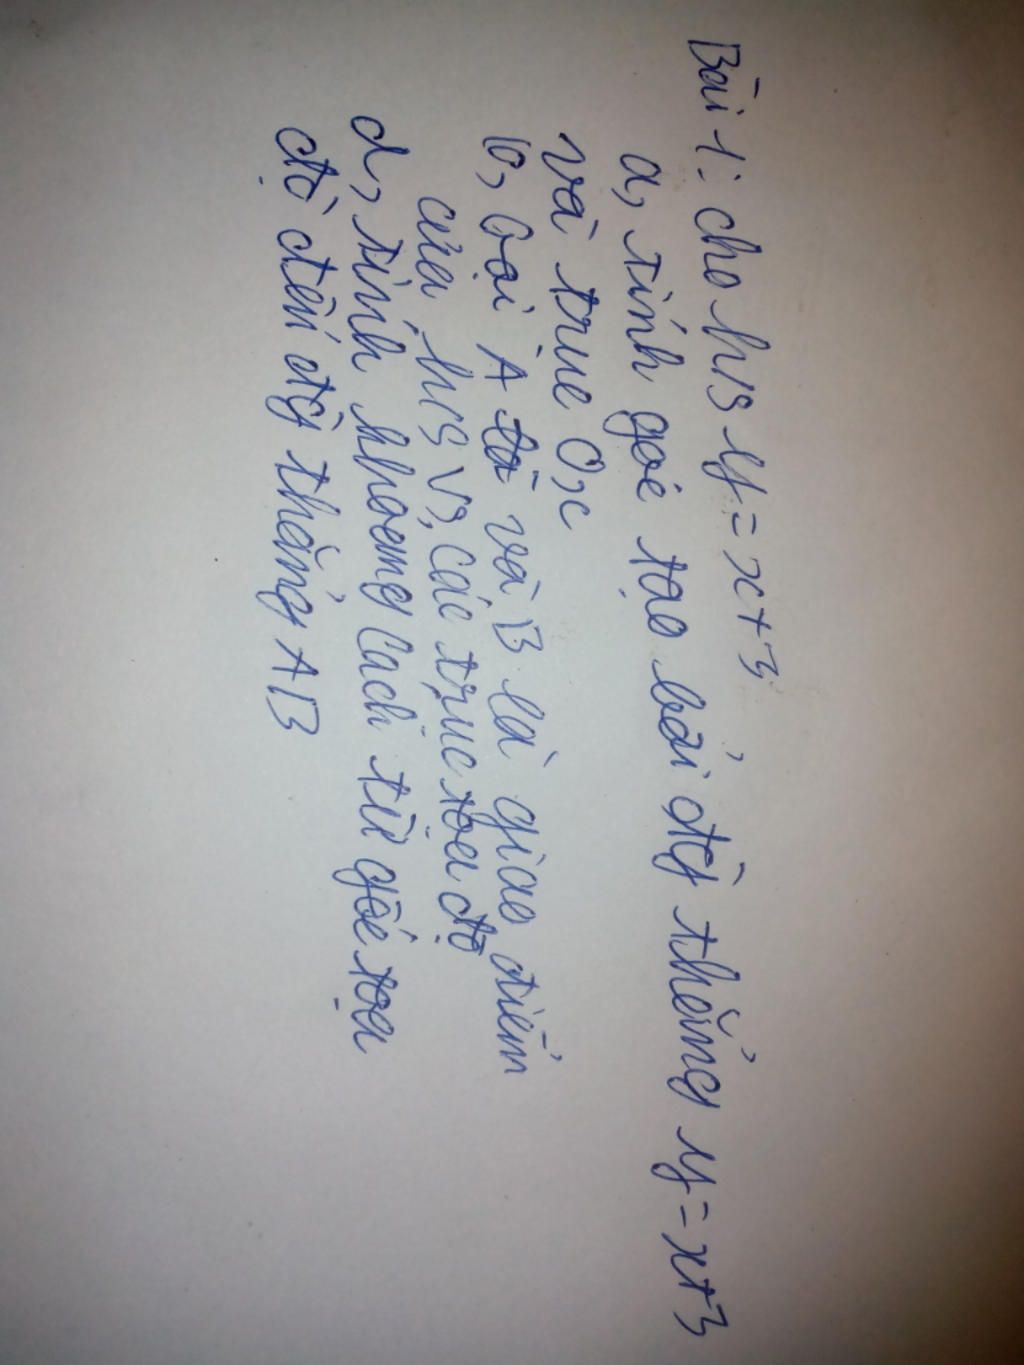 Bài 1: cho hs y = x + 3
a, tính góc tạo bởi đg thẳng y = x + 3
và trục Ox
b, Gọi A và B là giao điểm
của hs vs các trục tọa độ
d, tính khoảng cách từ gốc tọa
độ đến đg thẳng AB